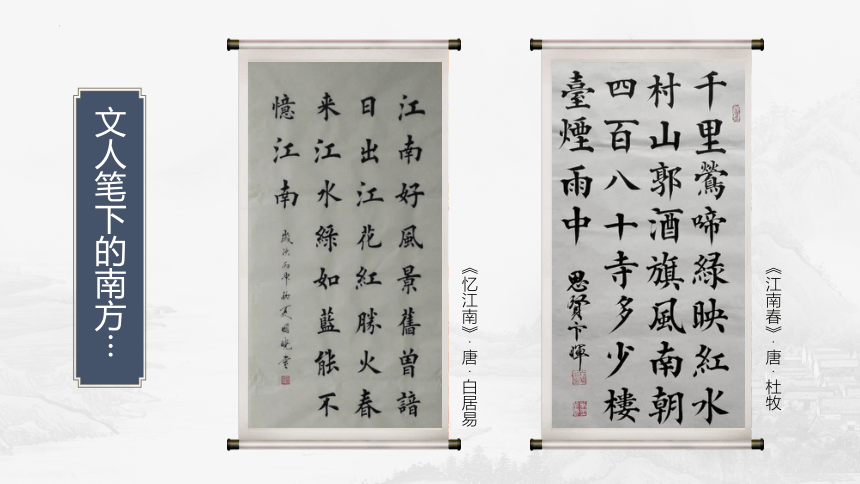 文人笔下的南方…
江南好風景舊曾諳
日出江花紅勝火春
来江水綠如藍能不
憶江南
《忆江南》·唐·白居易
千里鶯啼緑映紅水
村山郭酒旗風南朝
四百八十寺多少樓
臺煙雨中
思賢卞輝
《江南春》·唐·杜牧